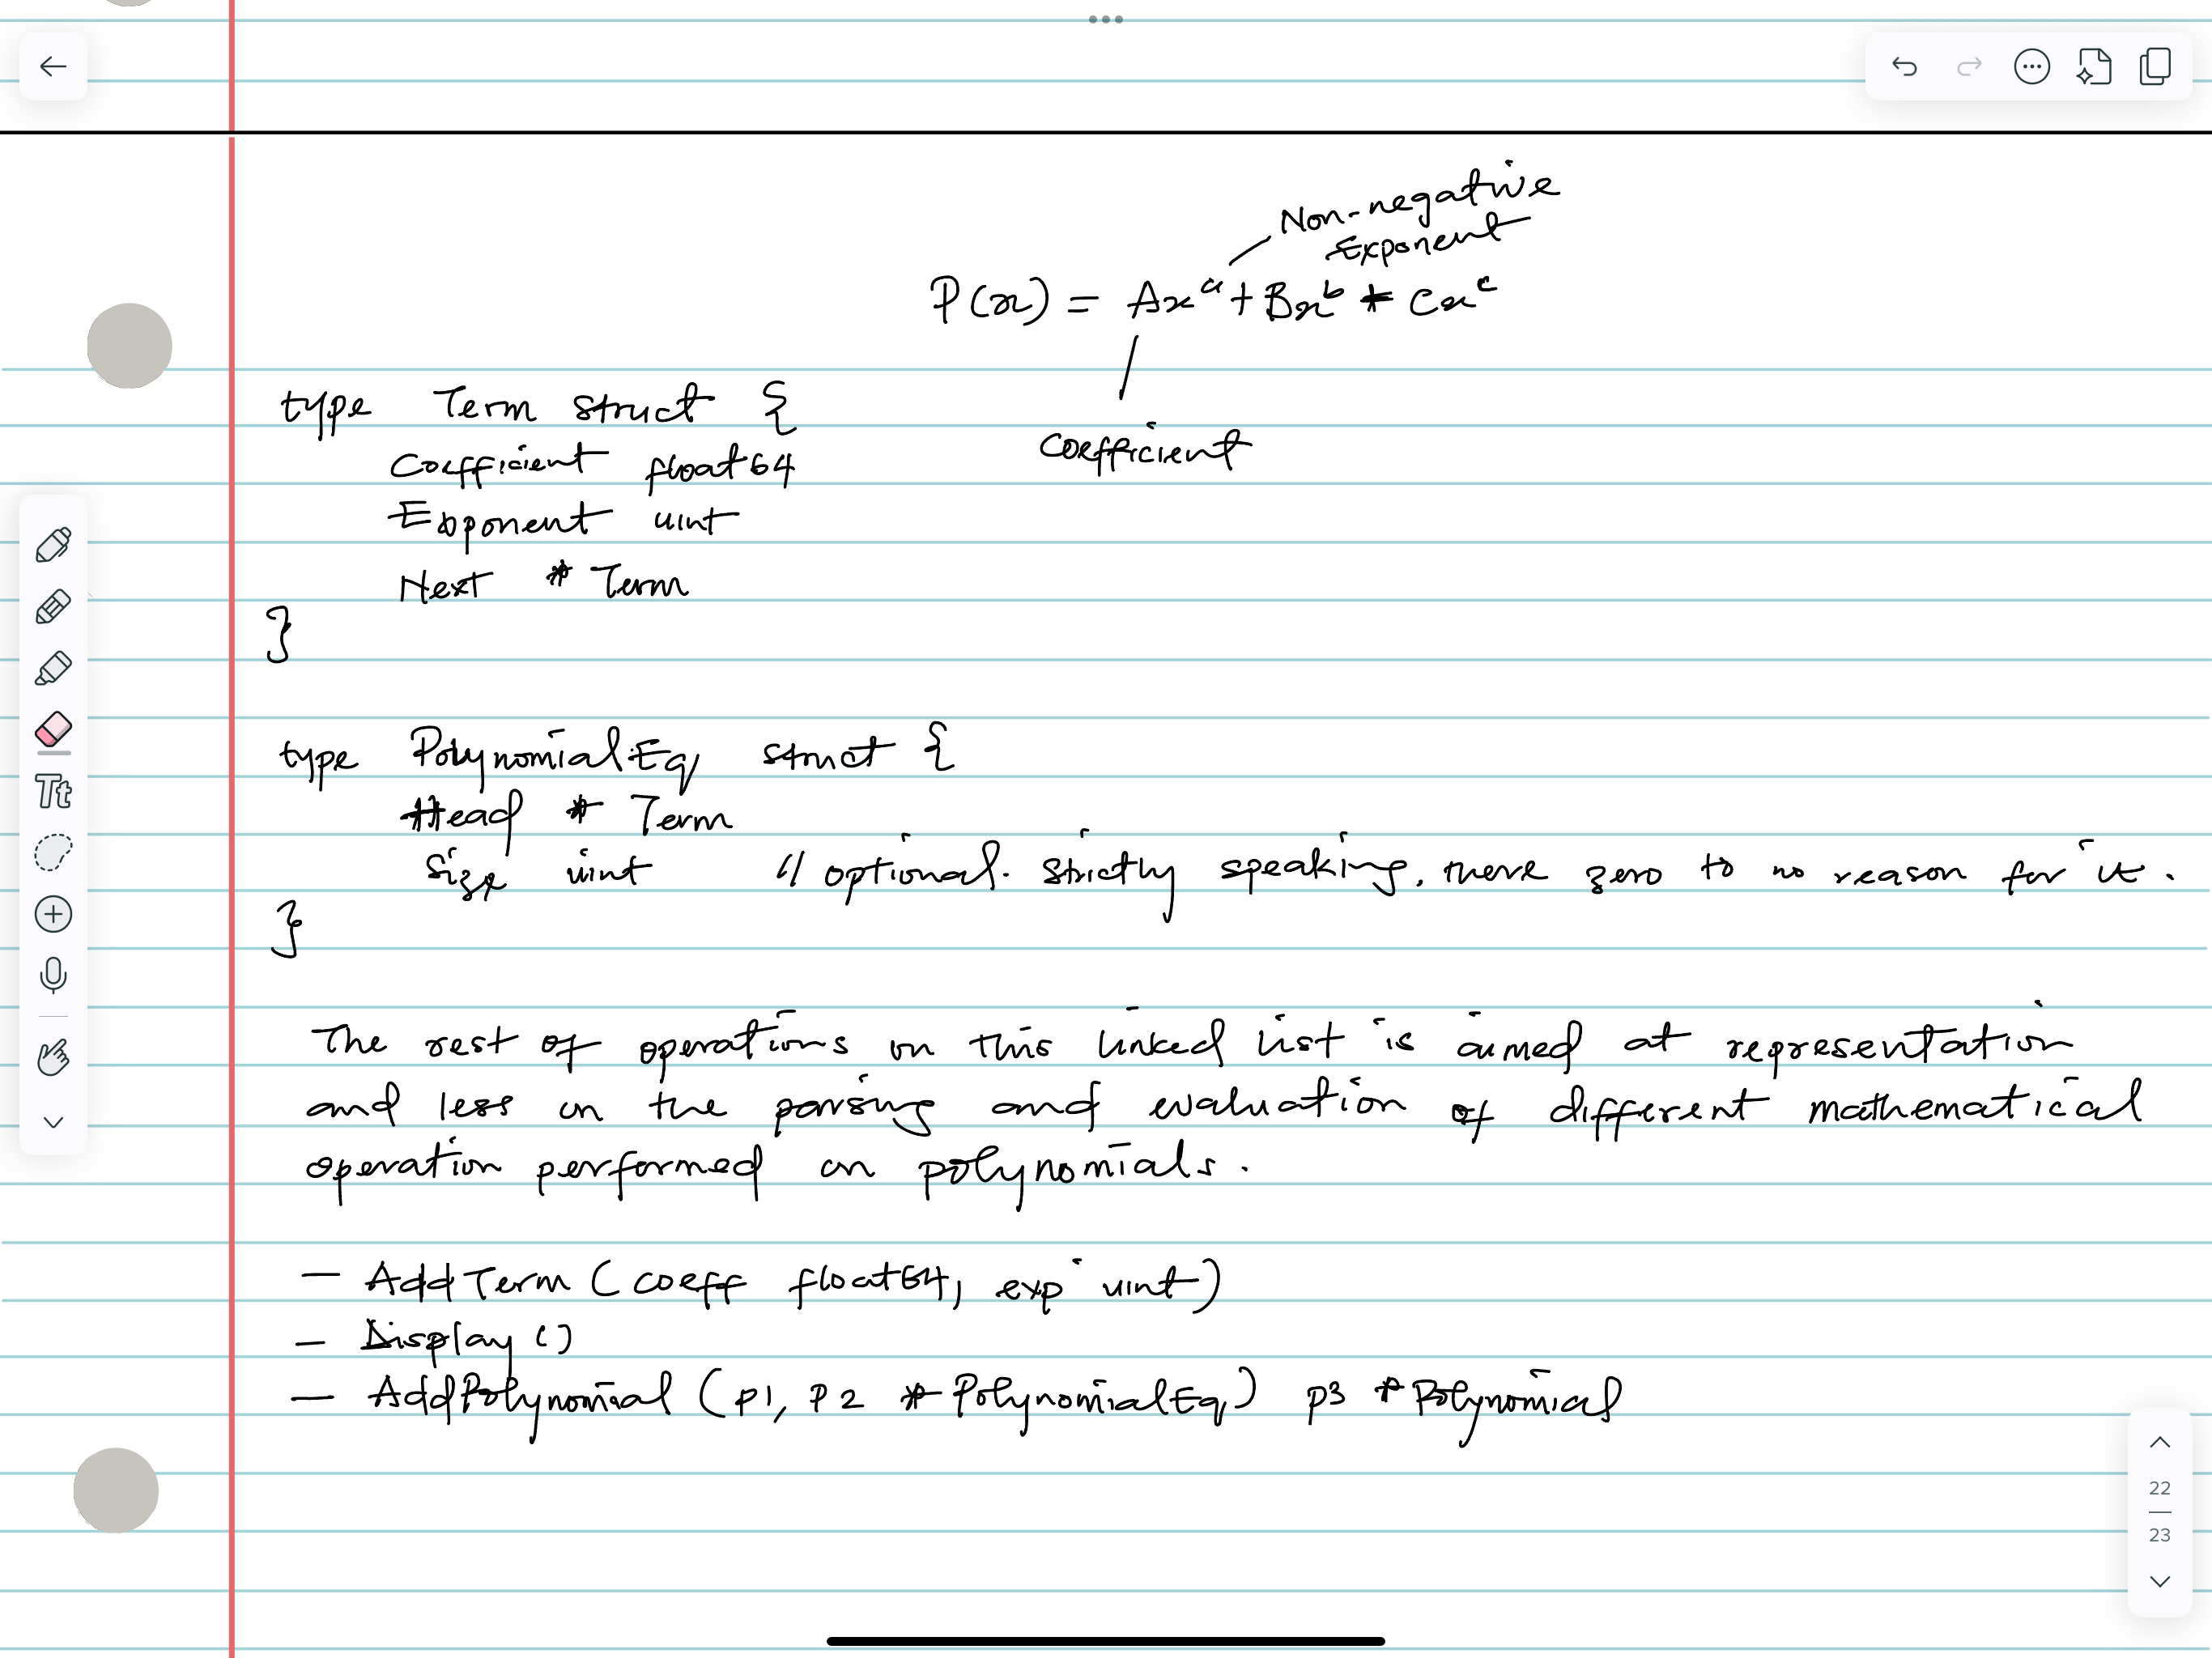 Non-negative
Exponent
P(x) = Ax^a + Bx^b * Cx^c
Coefficient
type Term struct {
Coefficient float64
Exponent uint
Next * Term
}
type PolynomialEq struct {
Head * Term
Size uint // optional. strictly speaking, there zero to no reason for it.
}
The rest of operations on this linked list is aimed at representation
and less on the parsing and evaluation of different mathematical
operation performed on polynomials.
— AddTerm (coeff float64, exp uint)
— Display ()
— AddPolynomial (p1, p2 * PolynomialEq) p3 * Polynomial
Tt
22
23